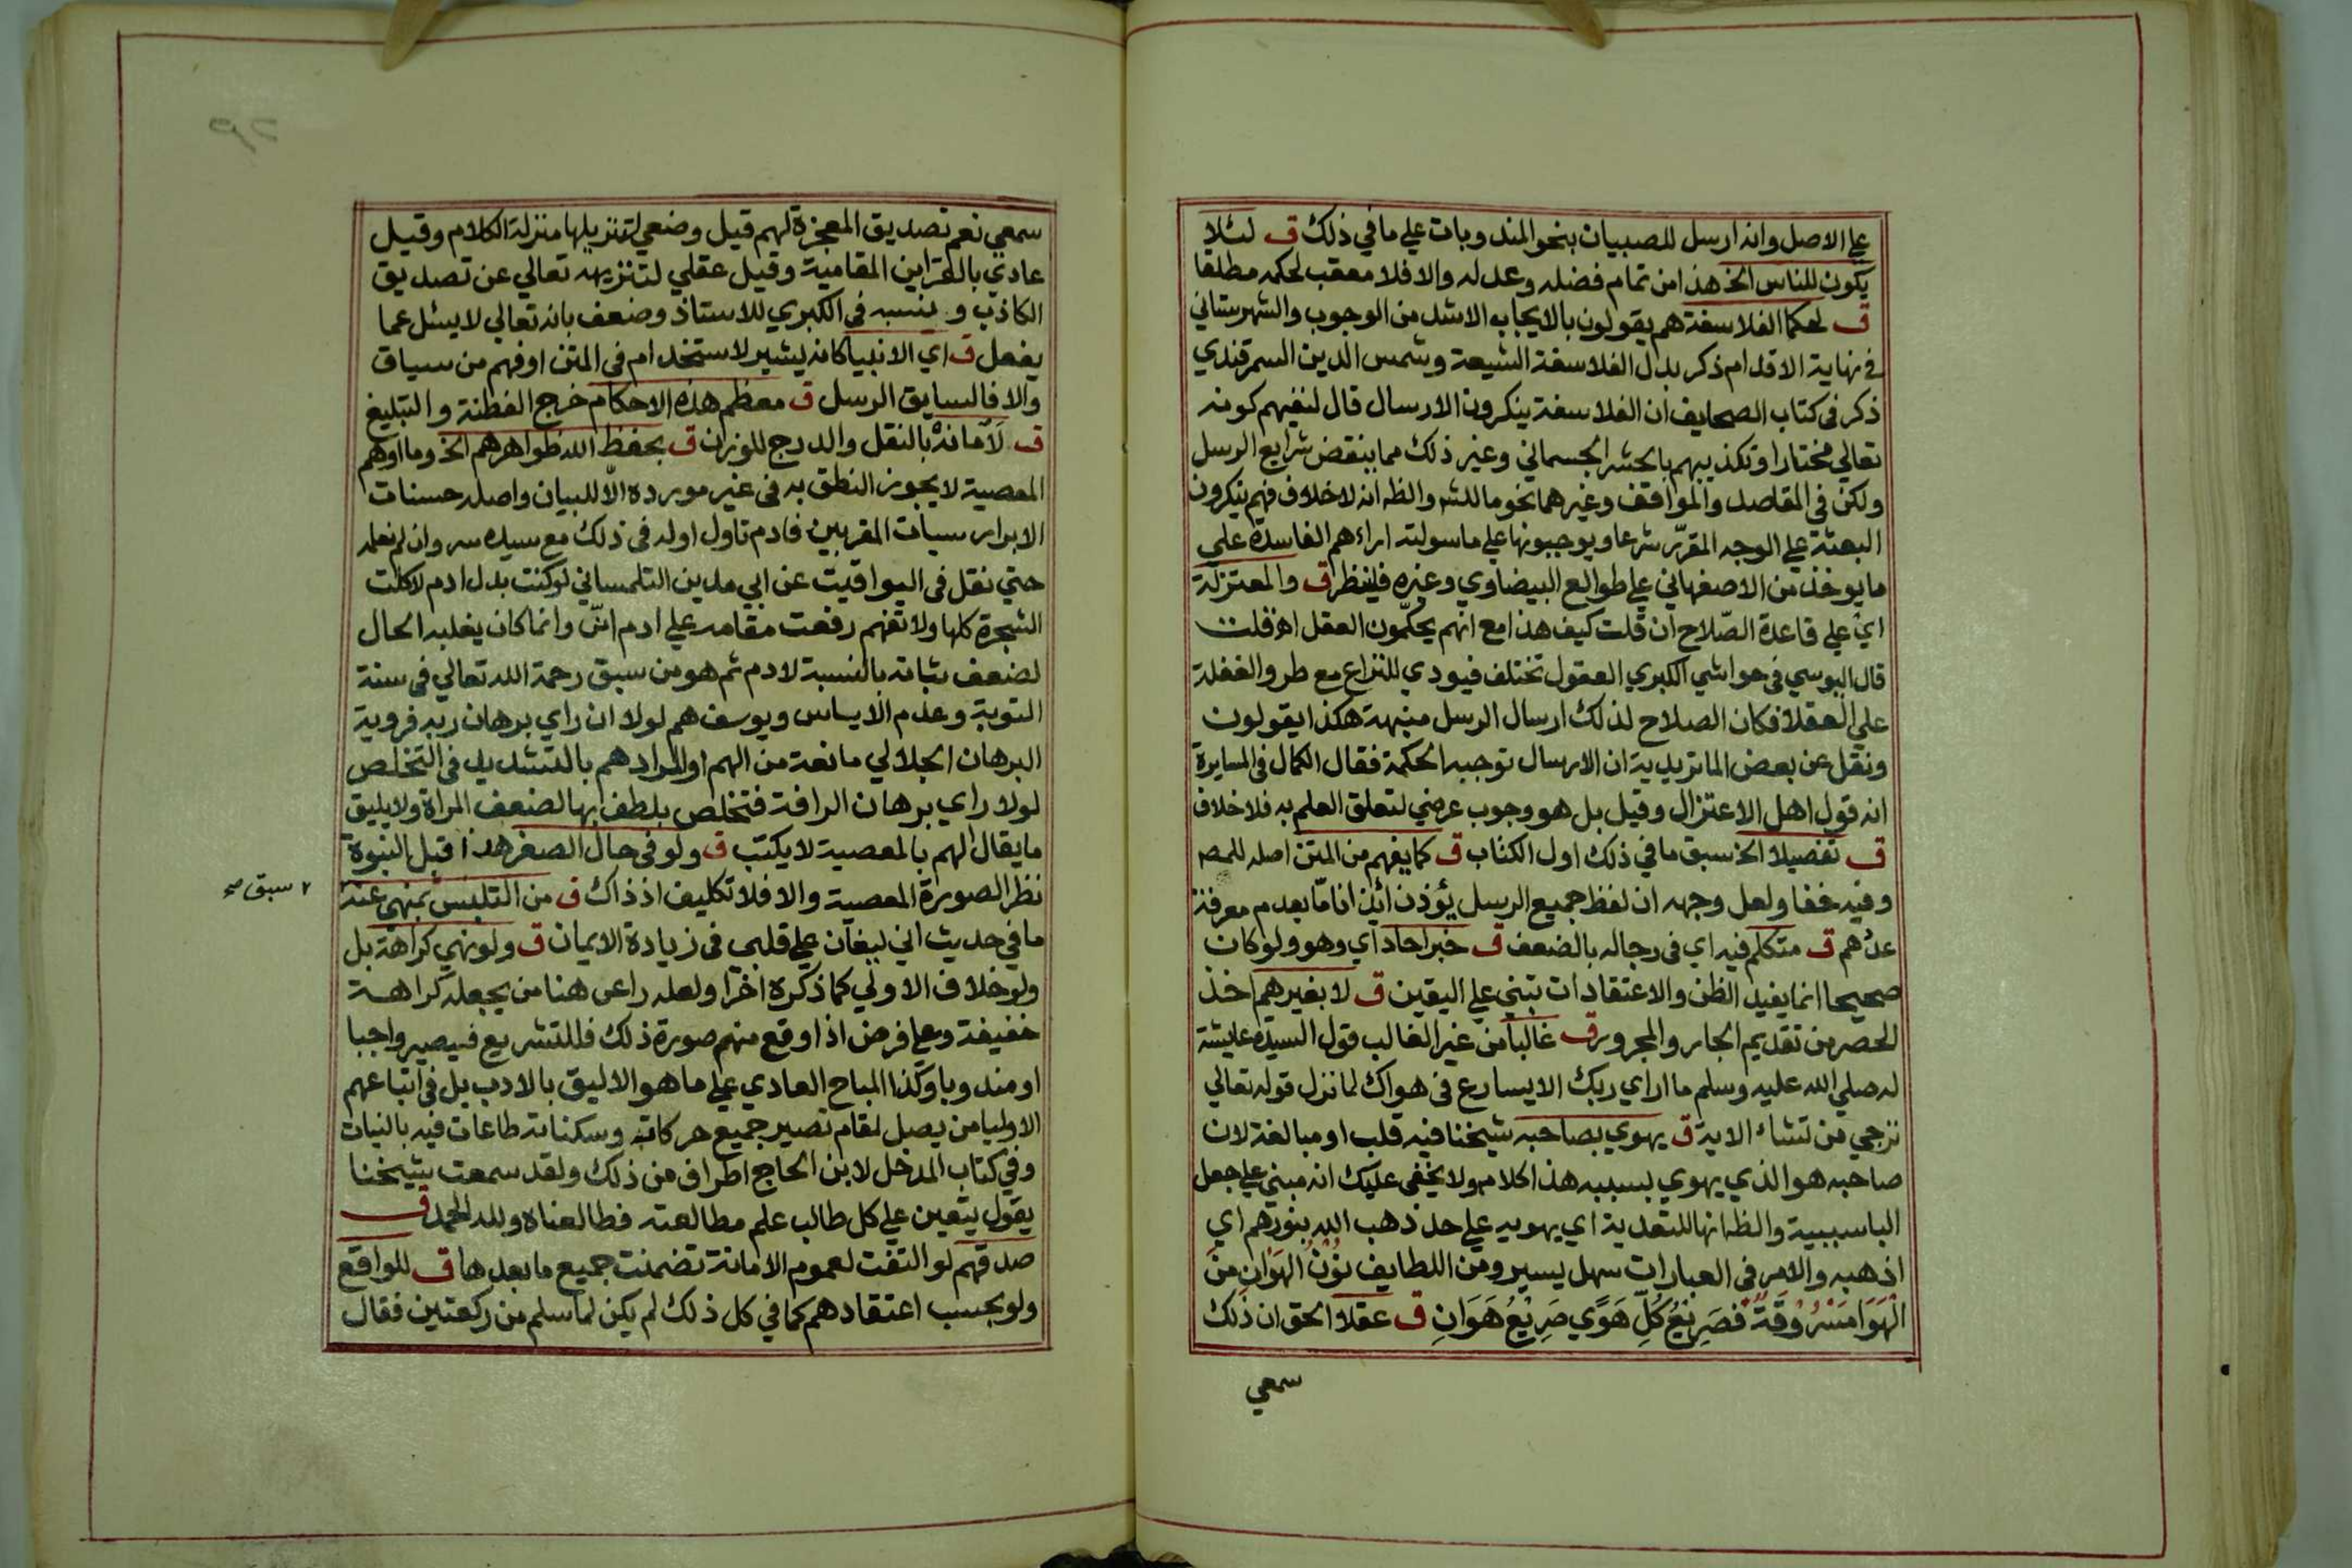 علي الاصل وانه ارسل للصبيان بنحو المندوبات علي ما في ذلك ق لئلا
يكون للناس الخ هذا من تمام فضله وعدله والا فلا معقب لحكمه مطلقا
ق لحكما الفلاسفة هم يقولون بالايجاب الاشد من الوجوب والشهرستاني
في نهاية الاقدام ذكر بدل الفلاسفة الشيعة وشمس الدين السمرقندي
ذكر في كتاب الصحايف ان الفلاسفة ينكرون الارسال قال لنفيهم كونه
تعالي مختارا وتكذيبهم بالحشر الجسماني وغير ذلك مما ينقض شرايع الرسل
ولكن في المقاصد والمواقف وغيرهما نحو ما للشه والظ انه لا خلاف فهم ينكرون
البعثة علي الوجه المقرر شرعا ويوجبونها علي ما سولته اراءهم الفاسدة علي
ما يوخذ من الاصفهاني علي طوالع البيضاوي وغيره فلينظر ق والمعتزلة
اي علي قاعدة الصلاح ان قلت كيف هذا مع انهم يحكمون العقل اه قلت
قال اليوسي في حواشي الكبري العقول تختلف فيودي للنزاع مع طرو الغفلة
علي العقلا فكان الصلاح لذلك ارسال الرسل منبهة هكذا يقولون
ونقل عن بعض الماتريدية ان الارسال توجبه الحكمة فقال الكمال في المسايرة
انه قول اهل الاعتزال وقيل بل هو وجوب عرضي لتعلق العلم به فلا خلاف
ق تفصيلا الخ سبق ما في ذلك اول الكتاب ق كما يفهم من المتن اصله للمصـ
وفيه خفا ولعل وجهه ان لفظ جميع الرسل يؤذن ائذانا ما بعدم معرفة
عدهم ق متكلم فيه اي في رجاله بالضعف ق خبر احاد اي وهو ولو كان
صحيحا انما يفيد الظن والاعتقادات تبتني علي اليقين ق لا بغيرهم اخذ
الحصر من تقديم الجار والمجرور ق غالبا من غير الغالب قول السيدة عايشة
له صلي الله عليه وسلم ما اراي ربك الا يسارع في هواك لما نزل قوله تعالي
ترجي من تشاء الاية ق يهوي بصاحبه شيخنا فيه قلب او مبالغة لان
صاحبه هو الذي يهوي بسببه هذا كلامه ولا يخفي عليك انه مبني علي جعل
الباسببية والظ انها للتعدية اي يهويه علي حد ذهب الله بنورهم اي
اذهبه والامر في العبارات سهل يسير ومن اللطايف نُونُ الهَوَانِ مِنَ
الهَوَا مَسْرُوقَةٌ فصَرِيْعُ كُلِّ هَوًي صَرِيْعُ هَوَانِ ق عقلا الحق ان ذلك
سمعي
سمعي نعم تصديق المعجزة لهم قيل وضعي لتنزيلها منزلة الكلام وقيل
عادي بالقراين المقامية وقيل عقلي لتنزيهه تعالي عن تصديق
الكاذب وينسبه في الكبري للاستاذ وضعف بانه تعالي لا يسئل عما
يفعل ق اي الانبيا كانه يشير لاستخدام في المتن او فهم من سياق
والا فالسابق الرسل ق معظم هذه الاحكام خرج الفطنة والتبليغ
ق لاَمانه بالنقل والدرج للوزن ق بحفظ الله ظواهرهم الخ وما اوهم
المعصية لا يجوز النطق به في غير مورده الا للبيان واصله حسنات
الابرار سيات المقربين فادم تاول اوله في ذلك مع سيده سر وان لم نعلمه
حتي نقل في اليواقيت عن ابي مدين التلمساني لو كنت بدل ادم لاكلت
الشجرة كلها ولا تفهم رفعت مقامه علي ادم انش وانما كان يغلبه الحال
لضعف ثباته بالنسبة لادم ثم هو من سبق رحمة الله تعالي في سنة
التوبة وعدم الاياس ويوسف هم لولا ان راي برهان ربه فروية
البرهان الجلالي مانعة من الهم او المراد هم بالتشديد في التخلص
لولا راي برهان الرافة فتخلص بلطف بها لضعف المراة ولا يليق
ما يقال الهم بالمعصية لا يكتب ق ولو في حال الصغر هذا قبل النبوة
نظر الصورة المعصية والا فلا تكليف اذ ذاك ق من التلبس بمنهي عنه
٢ سبق صح
ما في حديث اني ليغان علي قلبي في زيادة الايمان ق ولو نهي كراهة بل
ولو خلاف الاولي كما ذكره اخرا ولعله راعى هنا من يجعله كراهة
خفيفة وعلي فرض اذا وقع منهم صورة ذلك فللتشريع فيصير واجبا
او مندوبا وكذا المباح العادي علي ما هو الاليق بالادب بل في اتباعهم
الاوليا من يصل لمقام تصير جميع حركاته وسكناته طاعات فيه بالنيات
وفي كتاب المدخل لابن الحاج اطراف من ذلك ولقد سمعت شيخنا
يقول يتعين علي كل طالب علم مطالعته فطالعناه ولله الحمد ق
صدقهم لو التفت لعموم الامانة تضمنت جميع ما بعدها ق للواقع
ولو بحسب اعتقادهم كما في كل ذلك لم يكن لما سلم من ركعتين فقال